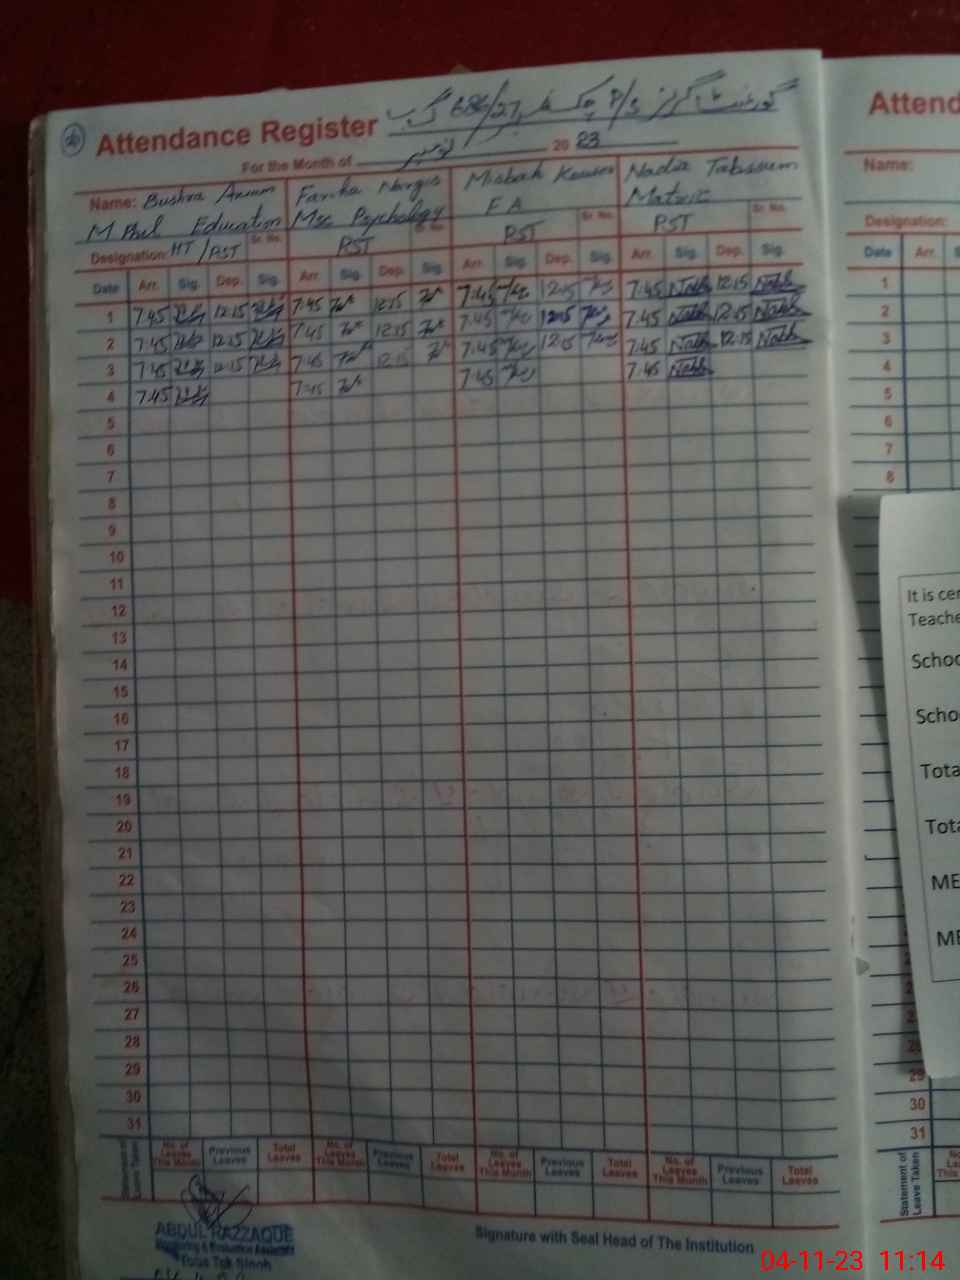 Attendance Register گورنمنٹ گرلز P/S چک نمبر 686/27 گ ب
For the Month of نومبر 2023
Name: Bushra Anum Farha Nargis Misbah Kausar Nadia Tabssum
M Phil Education Msc Psychology F A Matric
Sr. No. Sr. No. Sr. No. Sr. No.
Designation: HT/PST PST PST PST
Date Arr. Sig. Dep. Sig. Arr. Sig. Dep. Sig. Arr. Sig. Dep. Sig. Arr. Sig. Dep. Sig.
1 7:45 12:15 7:45 12:15 7:45 12:15 7:45 12:15
2 7:45 12:15 7:45 12:15 7:45 12:15 7:45 12:15
3 7:45 12:15 7:45 12:15 7:45 12:15 7:45 12:15
4 7:45 7:45 7:45 7:45
5
6
7
8
9
10
11
12
13
14
15
16
17
18
19
20
21
22
23
24
25
26
27
28
29
30
31
Statement of Leave Taken
No. of Leaves This Month Previous Leaves Total Leaves No. of Leaves This Month Previous Leaves Total Leaves No. of Leaves This Month Previous Leaves Total Leaves No. of Leaves This Month Previous Leaves Total Leaves
ABDUL RAZZAQUE
Monitoring & Evaluation Assistant
Toba Tek Singh
Signature with Seal Head of The Institution
Attend
Name:
Designation:
Date Arr.
1
2
3
4
5
6
7
8
It is cer
Teache
Schoo
Scho
Tota
Tota
ME
ME
29
30
31
Statement of Leave Taken
04-11-23 11:14